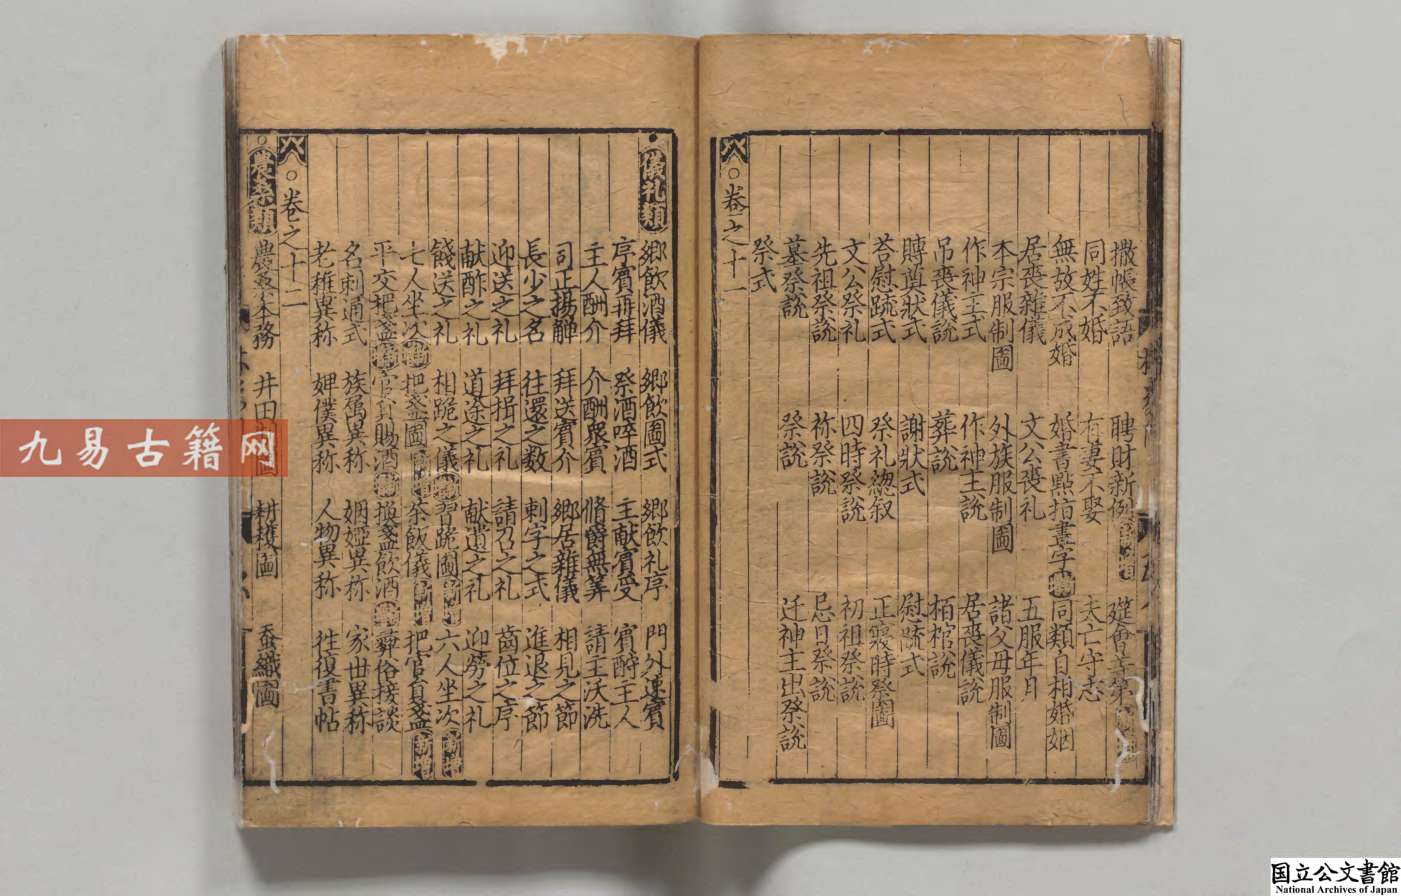 撒帳致語 聘財新例 筵會
同姓不婚 有妻不娶 夫亡守志
無故不成婚 婚書點指畫字 同類自相婚姻
居喪雜儀 文公喪礼 五服年月
本宗服制圖 外族服制圖 諸父母服制圖
作神主式 作神主說 居喪儀說
吊喪儀說 葬說 栢棺說
賻奠狀式 謝狀式 慰疏式
荅慰疏式 祭礼總叙 正寢時祭圖
文公祭礼 四時祭說 初祖祭說
先祖祭說 祢祭說 忌日祭說
墓祭說 祭說 迁神主出祭說
祭式
卷之十一
儀礼類 鄉飲酒儀 鄉飲圖式 鄉飲礼序 門外速賓
序賓再拜 祭酒啐酒 主献賓受 賓酧主人
主人酬介 介酬眾賓 脩爵無筭 請主沃洗
司正揚觶 拜送賓介 鄉居雜儀 相見之節
長少之名 往還之数 刺字之式 進退之節
迎送之礼 拜揖之礼 請召之礼 齒位之序
献酢之礼 道途之礼 献遺之礼 迎勞之礼
餞送之礼 相跪之儀 習跪圖 新增 六人坐次 新增
七人坐次 把盞圖 茶飯儀 新增 把官員盞 新增
平交把盞 官員賜酒 把盞飲酒 彝俗接談
名刺通式 族属異称 姻婭異称 家世異称
老稚異称 婢僕異称 人物異称 往復書帖
卷之十二
農桑類 農桑本務 井田 耕穫圖 蚕織圖
九易古籍网
国立公文書館
National Archives of Japan